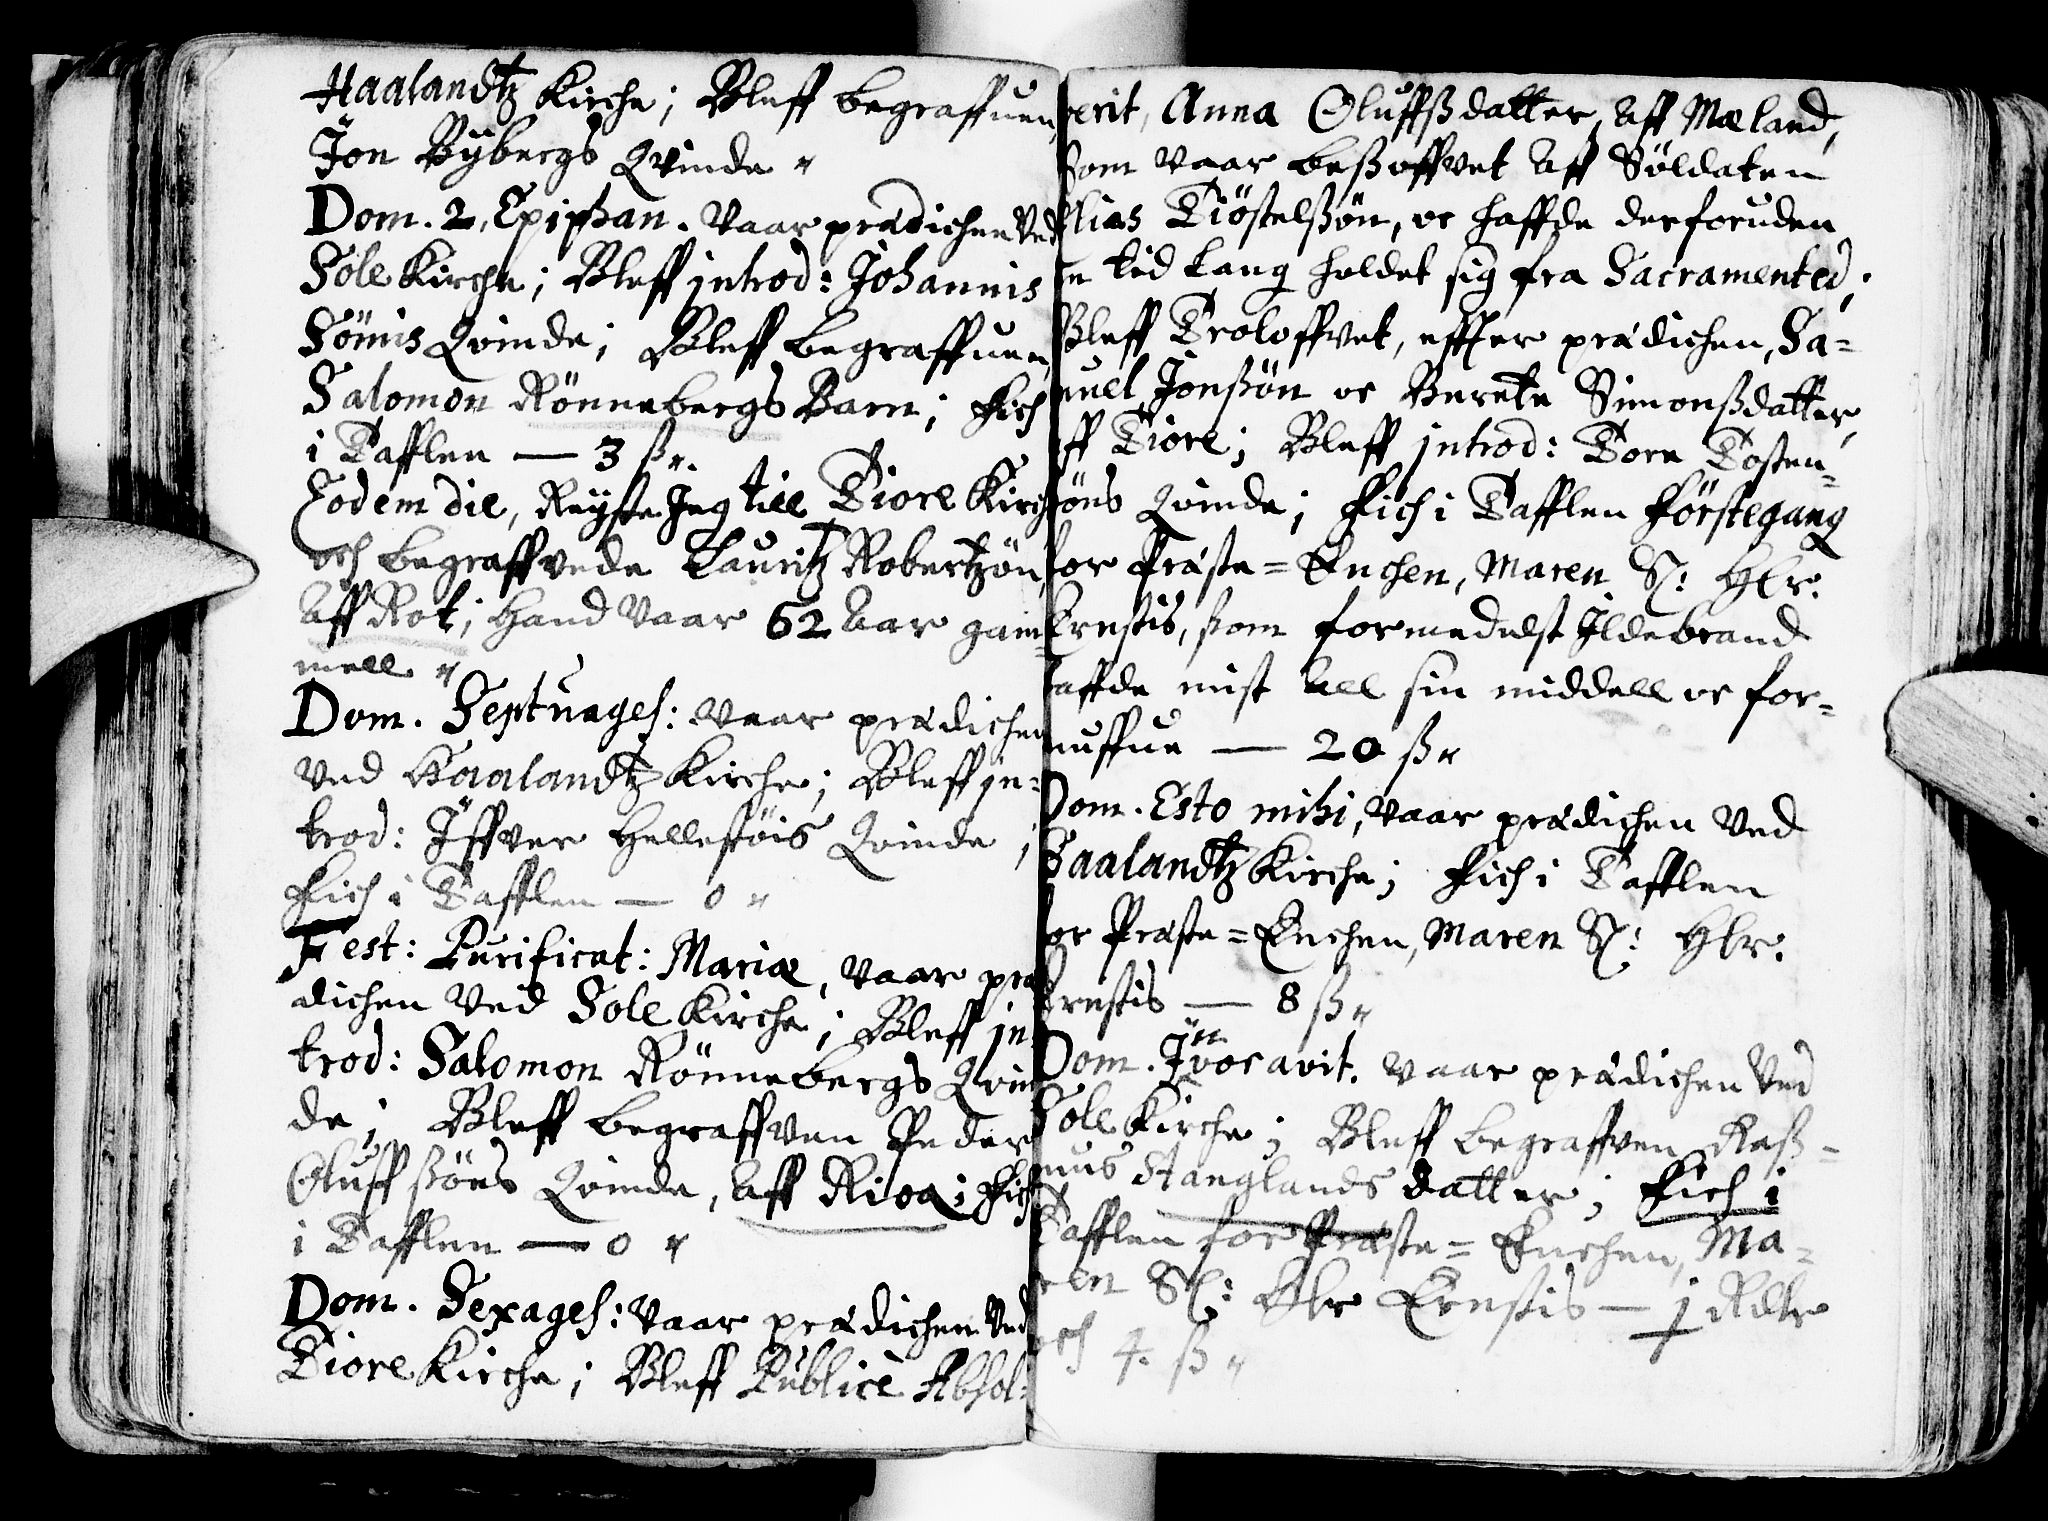 Haalandtz Kirche; Bleff begraffuen
Jon Bÿbergs Qvinde "
Dom. 2, Epiphan. Vaar prædichen Ved
Sole Kirche; Bleff introd: Johannis
Sömis Qvinde; Bleff begraffuen
Salomon Rönnebergs Barn; Fich
i Tafflen — 3 ß".
Eodem die, Reÿste Jeg till Tiore Kirch
och begraffvede Lauritz Robertzön,
Aff Rot; Hand Vaar 62 Aar gam-
mell "
Dom. Septuages: Vaar prædichen
Ved Haalandtz Kirche; Bleff in-
trod: Iffver Hellestöis Qvinde;
Fich i Tafflen — 0 "
Fest: Purificat: Mariæ, Vaar præ
dichen Ved Sole Kirche; Bleff in-
trod: Salomon Rönnebergs Qvin
de; Bleff begraffven Peder
Oluffßöns Qvinde, Aff Risa; Fich
i Tafflen — 0 "
Dom. Sexages: Vaar prædichen Ved
Tiore Kirche; Bleff Publicè Absol-
verit, Anna Oluffßdatter, Aff Mæland,
Som Vaar besoffvet Aff Söldaten
Elias Tiöstelßön, oc haffde desforuden
en tid lang holdet sig fra Sacramented;
Bleff Troloffvet, effter prædichen, Sa-
muel Jonßön oc Berete Simonßdatter,
Aff Tiore; Bleff introd: Tore Tosten-
söns Qvinde; Fich i Tafflen Förstegang
for Præste-Enchen, Maren Sl: Hlr:
Ernstis, ßom formedelst Ildebrand
haffde mist All sin middell oc for-
muffue — 20 ß"
Dom. Esto mihi, Vaar prædichen Ved
Haalandtz Kirche; Fich i Tafflen
for Præste-Enchen, Maren Sl: Hlr:
Ernstis — 8 ß"
Dom. Invocavit. Vaar prædichen Ved
Sole Kirche; Bleff begraffven Raß-
mus Stanglands datter; Fich i
Tafflen for Præste-Enchen, Ma-
ren Sl: Hlr Ernstis — 1 Rdlr
och 4. ß "